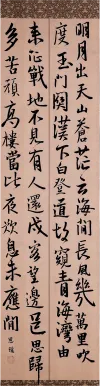 明月出天山蒼茫雲海間長風幾萬里吹
度玉門關漢下白登道胡窺青海灣由
来征戰地不見有人還戍客望邊邑思歸
多苦顏高樓當此夜歎息未應閒